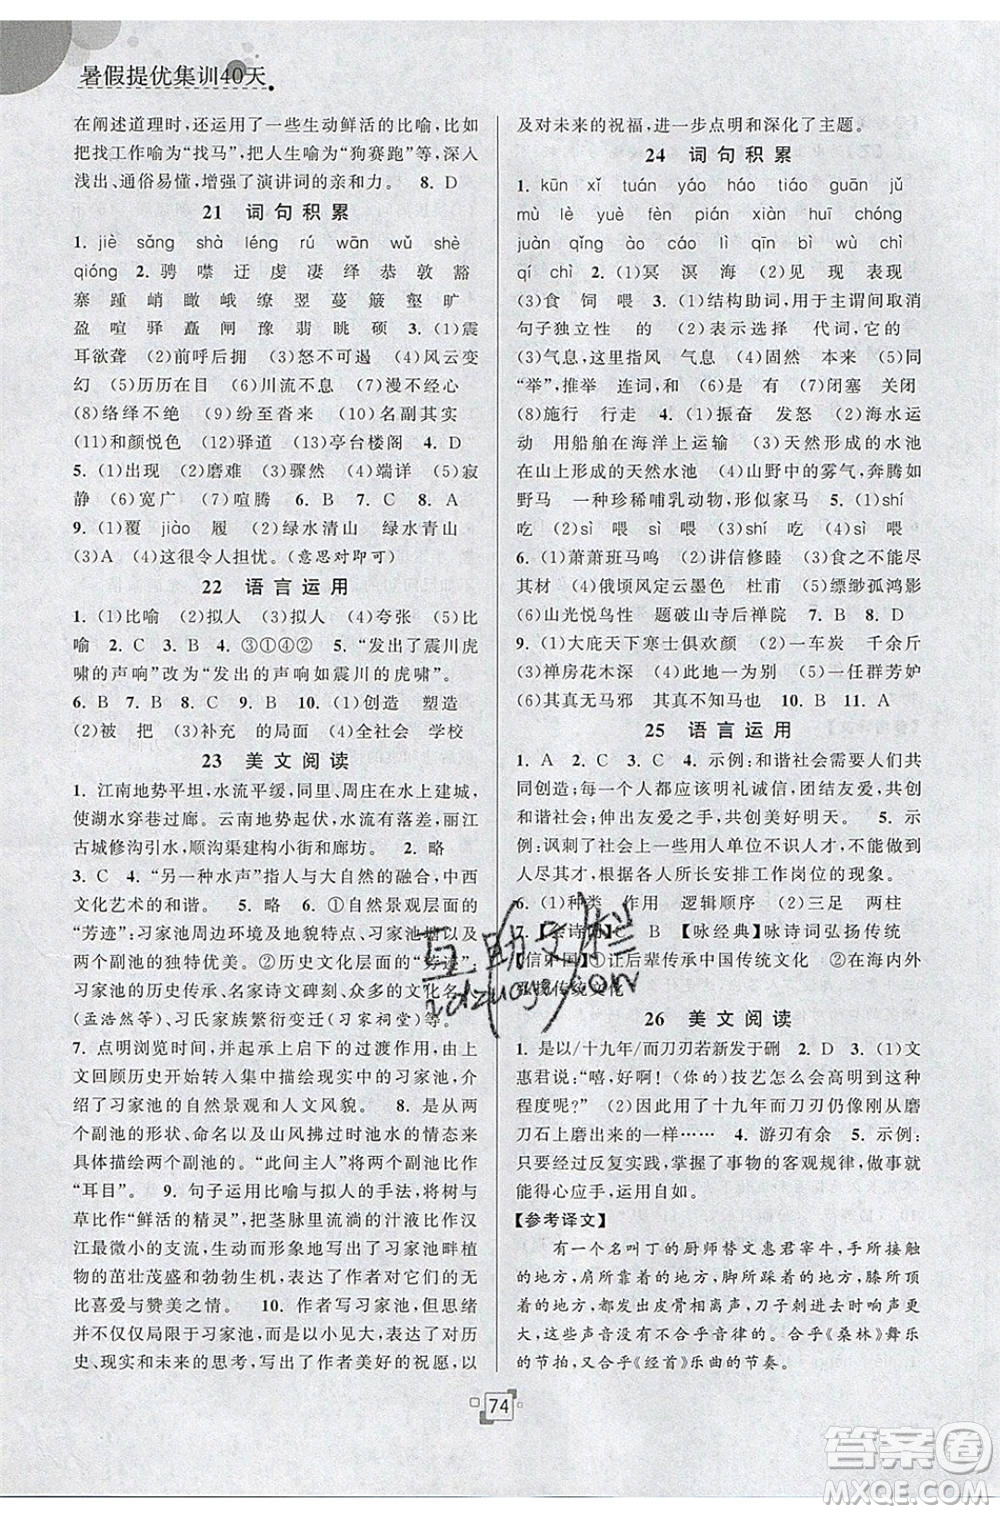 暑假提优集训40天
在阐述道理时,还运用了一些生动鲜活的比喻,比如
把找工作喻为“找马”,把人生喻为“狗赛跑”等,深入
浅出、通俗易懂,增强了演讲词的亲和力。 8. D
21 词句积累
1. jiè sǎng shà léng rú wān wū shè
qióng 2. 骋 噤 迂 虔 凄 绎 恭 敦 豁
寨 踵 峭 瞰 峨 缭 翌 蔓 簸 壑 旷
盈 喧 驿 矗 闸 豫 翡 眺 硕 3. (1)震
耳欲聋 (2)前呼后拥 (3)川流不息 (4)风云变
幻 (5)历历在目 (6)川流不息 (7)漫不经心
(8)络绎不绝 (9)纷至沓来 (10)名副其实
(11)和颜悦色 (12)驿道 (13)亭台楼阁 4. D
5. (1)出现 (2)磨难 (3)骤然 (4)端详 (5)寂
静 (6)宽广 (7)喧腾 6. B 7. B 8. A
9. (1)覆 jiào 履 (2)绿水清山 绿水青山
(3)A (4)这很令人担忧。(意思对即可)
22 语言运用
1. (1)比喻 (2)拟人 (3)拟人 (4)夸张 (5)比
喻 2. C 3. B 4. ③①④② 5. “发出了震川虎
啸的声响”改为“发出了如震川的虎啸”。
6. B 7. B 8. C 9. B 10. (1)创造 塑造
(2)被 把 (3)补充 的局面 (4)全社会 学校
23 美文阅读
1. 江南地势平坦,水流平缓,同里、周庄在水上建城,
使湖水穿巷过廊。云南地势起伏,水流较湍急,丽江
古城修沟引水,顺沟渠建构小街和廊坊。 2. 略
3. C 4. “另一种水声”指人与大自然的融合,中西
文化艺术的和谐。 5. 略 6. ①自然景观层面的
“芳迹”:习家池周边环境及地貌特点,习家池塘以及
两个副池的独特优美。②历史文化层面的“芳迹”:
习家池的历史传承、名家诗文碑刻、众多的文化名人
(孟浩然等)、习氏家族繁衍变迁(习家祠堂)等。
7. 点明历史,在文中起承上启下的过渡作用,由上
文回顾历史开始转入集中描绘现实中的习家池,介
绍了习家池的自然景观和人文风貌。 8. 是从习家
两个副池的形状、命名以及山风拂过时池水的情态来
具体描绘两个副池的。“此间主人”将两个副池比作
“耳目” 9. 句子运用比喻与拟人的手法,将树木与
草比作“鲜活的精灵”,把茎脉里流淌的汁液比作汉
江最微小的支流,生动形象地写出了习家池畔植
物的茁壮茂盛和勃勃生机,表达了作者对它们的无
比喜爱与赞美之情。 10. 作者写习家池,但思绪
却不仅局限于习家池,以小见大,表达了作者对历
史、现实和未来的思考,写出了作者美好的祝愿,以
及对未来的祝福,进一步点明和深化了主题。
24 词句积累
1. kūn xǐ tuán yáo háo tiáo guān jǔ
mù lè yuè fèn pián yú huǐ chóng
juàn qǐng ào lì qīn bì wù chì
qí chì 2. (1)冥 溟 海 (2)见 现 表现
(3)食 饲 喂 3. (1)结构助词,用于主谓间取消
句子独立性 的 (2)表示选择 代词,它的
(3)气息,这里指风 气息 (4)固然 本来 (5)同
“举”,推举 连词,和 (6)是 有 (7)闭塞 关闭
(8)施行 行走 4. (1)振奋 发怒 (2)海水运
动 用船舶在海洋上运输 (3)天然形成的水池
在山上形成的天然水池 (4)山野中的雾气,奔腾如
野马 一种珍稀哺乳动物,形似家马 5. (1)shí
吃 (2)sì 喂 sì 喂 (3)shí 吃 (4)shí
吃
6. (1)萧萧班马鸣 (2)讲信修睦 (3)食之不能尽
其材 (4)俄顷风定云墨色 杜甫 (5)缥缈孤鸿影
(6)山光悦鸟性 题破山寺后禅院 7. B 8. D
9. (1)大庇天下寒士俱欢颜 (2)一车炭 千余斤
(3)禅房花木深 (4)此地一为别 (5)一任群芳妒
(6)其真无马邪 其真不知马也 10. B 11. A
25 语言运用
1. A 2. C 3. C 4. 示例:和谐社会需要人们共
同创造;每一个人都应该明礼诚信,团结友爱,共同
创造和谐社会;伸出友爱之手,共创美好明天。 5. 示
例:讽刺了社会上一些用人单位不识人才,不能够
依据各人所长安排工作岗位的现象。
6. (1)种类 作用 逻辑顺序 (2)三足 两柱
7. C B 【咏经典】咏诗词弘扬传统
中国传统文化 ②在海内外
弘扬传统文化
26 美文阅读
1. 是以/十九年/而刀刃若新发于硎 2. D 3. (1)文
惠君说:“嘻,好啊!(你的)技艺怎么会高明到这种
程度呢?” (2)因此用了十九年而刀刃却像刚从磨
刀石上磨出来的一样…… 4. 游刃有余 5. 示例:
只要经过反复实践,掌握了事物的客观规律,做事就
能得心应手,运用自如。
【参考译文】
有一个名叫丁的厨师替文惠君宰牛,手所接触
的地方,肩所靠着的地方,脚所踩着的地方,膝所顶
着的地方,都发出皮骨相离声,刀子刺进去时响声更
大,这些声音没有不合乎音律的。合乎《桑林》舞乐
的节拍,又合乎《经首》乐曲的节奏。
74
互助文栏
答案圈
MXQE.COM